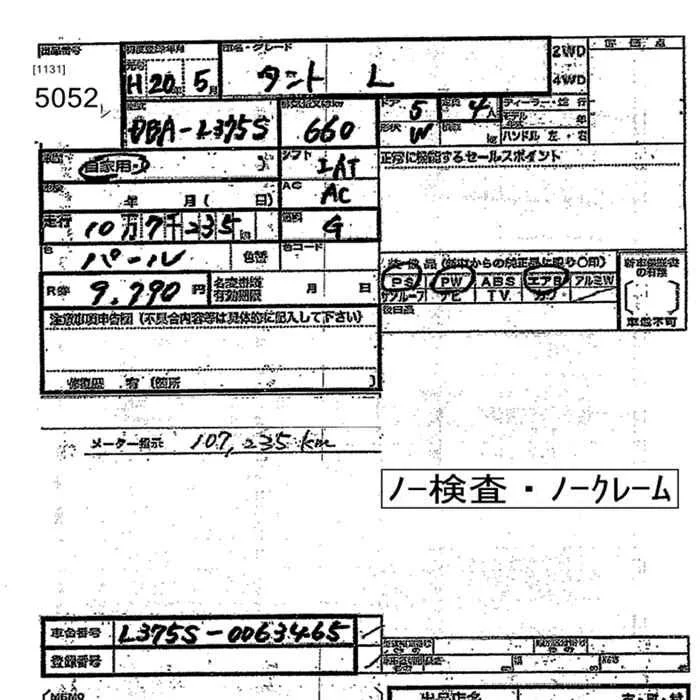 出品番号 初度登録年月 車名・グレード 2WD 評価点
[1131] 元号 H 20年 5月 タント L 4WD
5052
型式 排気量又はkw ドア 5 定員 4人 ディーラー・並行
DBA-L375S 660 形状 W 積載 kg モデル 年
ハンドル 左・右
車歴 自家用 シフト IAT 正常に機能するセールスポイント
車検 年 月( 日) AC AC
走行 10万7千235km 燃料 G
色 パール 色替 色コード 装備品(新車からの純正品に限り〇印) 新車保証書の有無
R券 9,790円 名変期限 有効期限 月 日 PS PW ABS エアB アルミW
サンルーフ ナビ TV カワ
注意事項申告団(不具合内容等は具体的に記入して下さい) 後日品 車急不可
修復歴 有(箇所 )
メーター指示 107,235 km
ノー検査・ノークレーム
車台番号 L375S-0063465
登録番号
MEMO 出品店名